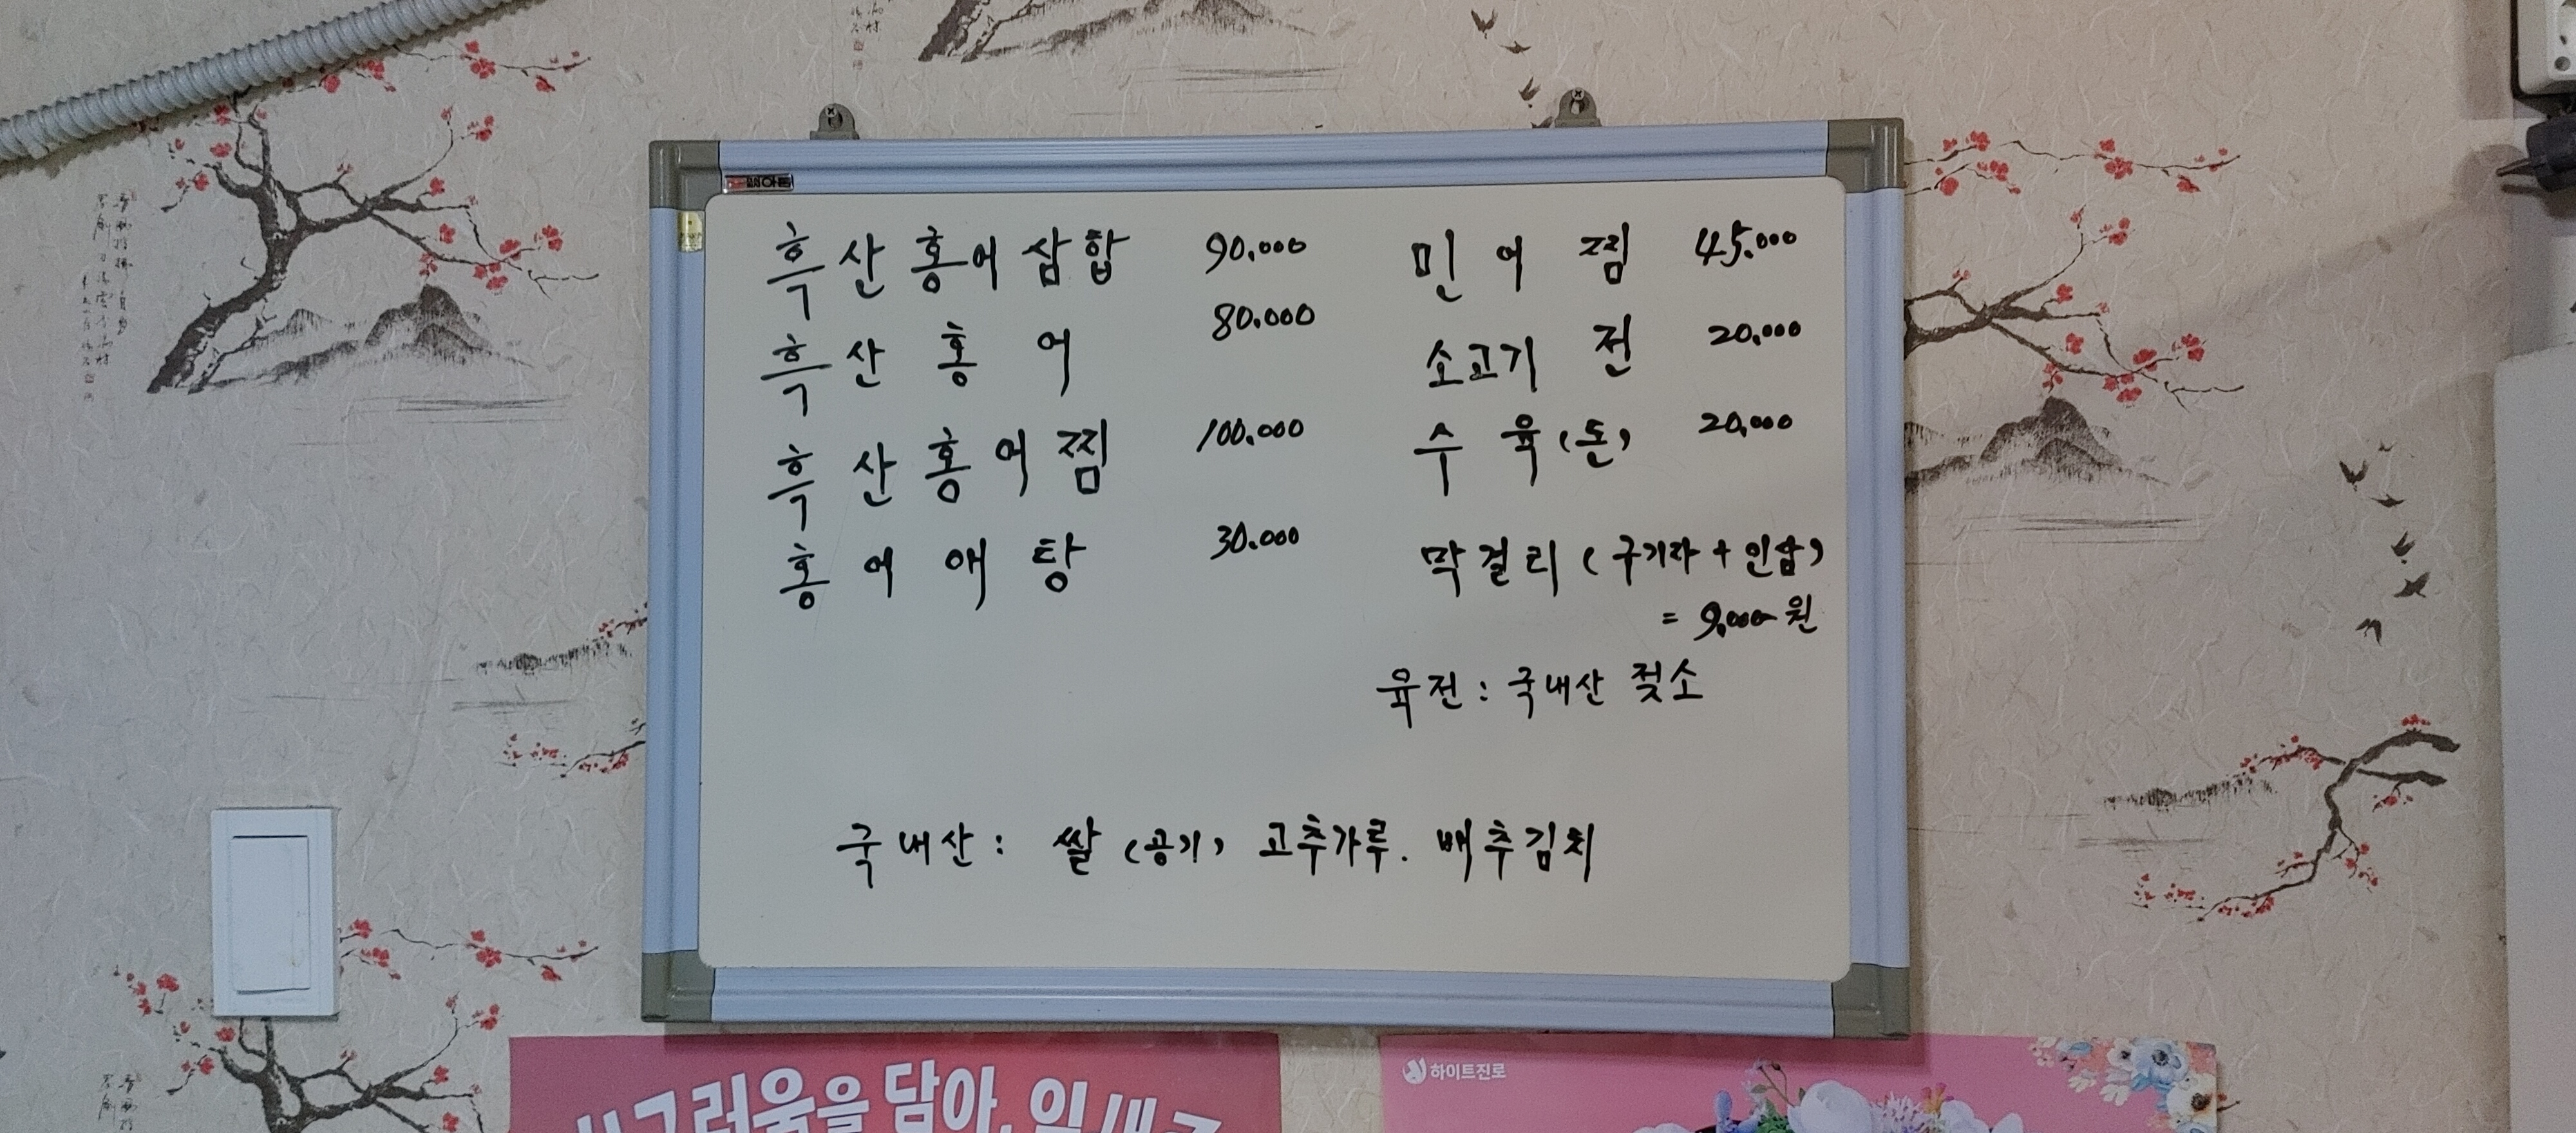 흑산홍어삼합 90.000
흑산홍어 80.000
흑산홍어찜 100.000
홍어애탕 30.000
민어찜 45.000
소고기전 20.000
수육(돈) 20,000
막걸리 (구기자 + 인삼)
= 9,000원
육전 : 국내산 젖소
국내산 : 쌀 (공기) 고추가루. 배추김치
하이트진로
담아,